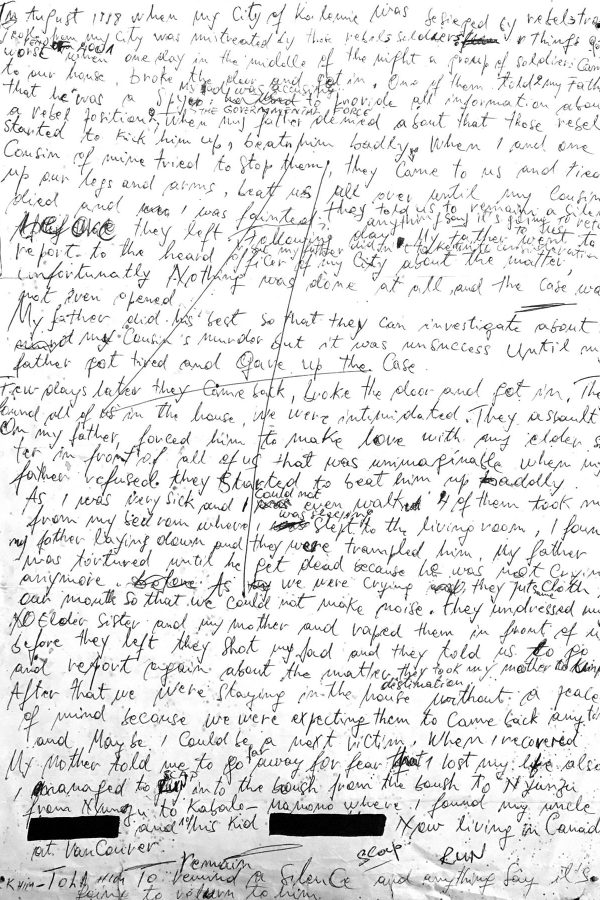 In August 1998 when my City of Kalemie was besieged by rebels troo
people from my City was mistreated by those rebels soldiers things go
worse when 2001 one day in the middle of the night a group of soldiers Came
to our house, broke the door and get in. One of them told my Fath
that he was a Spyer: to provide all information abou
THE GOVERNMENTAL FORCE
a rebel position, when my father denied about that those rebel
started to kick him up, beat him badly, When I and one
Cousin of mine tried to stop them, they came to us and tied
up our legs and arms, beat us all over until my Cousin
died and I was fainted. they told us to remain a silen
anything say it's going to retu
they left following day. My father went to
report to the heard officer of my City about the matter,
unfortunatly Nothing was done at all, and the case wa
not even opened.
My father did his best so that they can investigate about
my Cousin's murder but it was unsuccess Until my
father got tired and Gave up the Case.
Few days later they came back, broke the door and get in. The
found all of us in the house, we were intimidated. They assault
on my father, forced him to make love with my elder s
ter in front of all of us that was unimaginable when my
father refused. they Started to beat him up badly.
As I was very sick and I could not even walk, 4 of them took m
from my bed room where I was sleeping to the living room. I foun
my father laying down and they were trampled him, my father
was tortured until he get dead because he was not crying
anymore. As we were crying they put Cloth
our mouth so that we could not make noise. they undressed my
Elder sister and my mother and raped them in front of u
before they left they shot my dad and they told us to go
and report again about the matter, they took my mother to unk
destination.
After that we were staying in the house without a peace
of mind because we were expecting them to came back anyti
and Maybe I could be a next victim. When I recovered
My Mother told me to go far away for fear that I lost my life also
I managed to RUN into the boush from the boush to Nyunzu
from Nyunzu to Kabalo - Manono where I found my uncle
and his kid Now living in Canad
at Vancouver
remain
scoop RUN
Told Him To remind a Silence and anything say it's
going to return to him